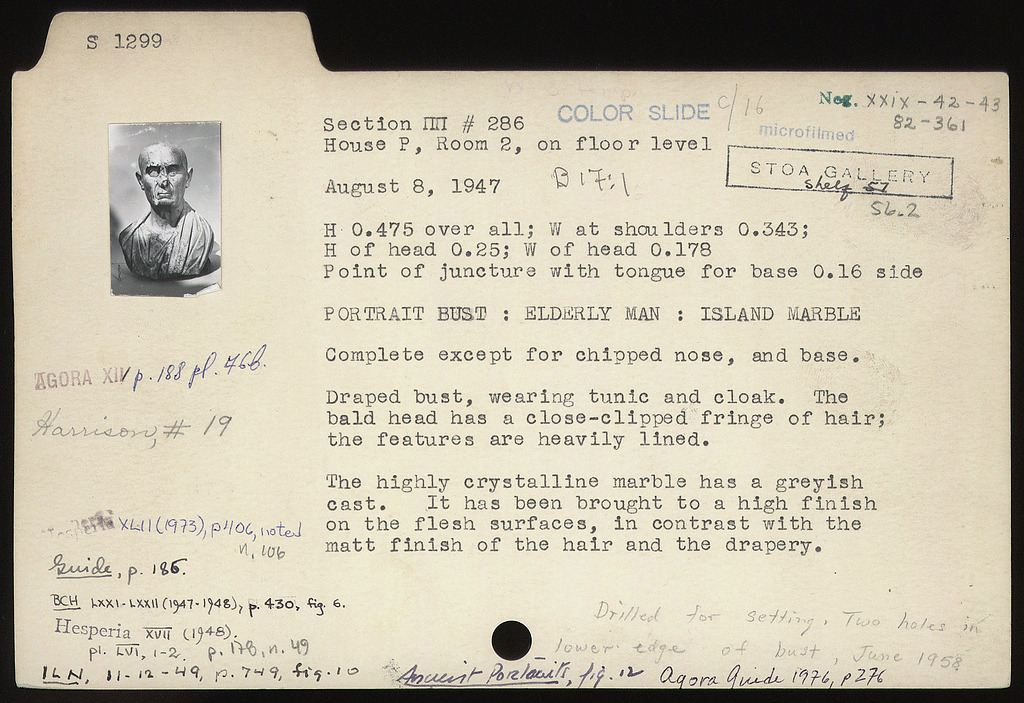 S 1299
COLOR SLIDE C/16
Neg. XXIX-42-43
82-361
microfilmed
STOA GALLERY
Shelf 57
56.2
Section ΠΠ # 286
House P, Room 2, on floor level
August 8, 1947
B 17:1
H 0.475 over all; W at shoulders 0.343;
H of head 0.25; W of head 0.178
Point of juncture with tongue for base 0.16 side
PORTRAIT BUST : ELDERLY MAN : ISLAND MARBLE
Complete except for chipped nose, and base.
Draped bust, wearing tunic and cloak. The
bald head has a close-clipped fringe of hair;
the features are heavily lined.
The highly crystalline marble has a greyish
cast. It has been brought to a high finish
on the flesh surfaces, in contrast with the
matt finish of the hair and the drapery.
AGORA XIV p. 188 pl. 76b.
Harrison, # 19
XLII (1973), p 406, noted
n. 106
Guide, p. 186.
BCH LXXI-LXXII (1947-1948), p. 430, fig. 6.
Hesperia XVII (1948).
pl. LVI, 1-2. p. 178, n. 49
ILN, 11-12-49, p. 749, fig. 10
Drilled for setting. Two holes in
lower edge of bust, June 1958
Ancient Portraits, fig. 12
Agora Guide 1976, p 276